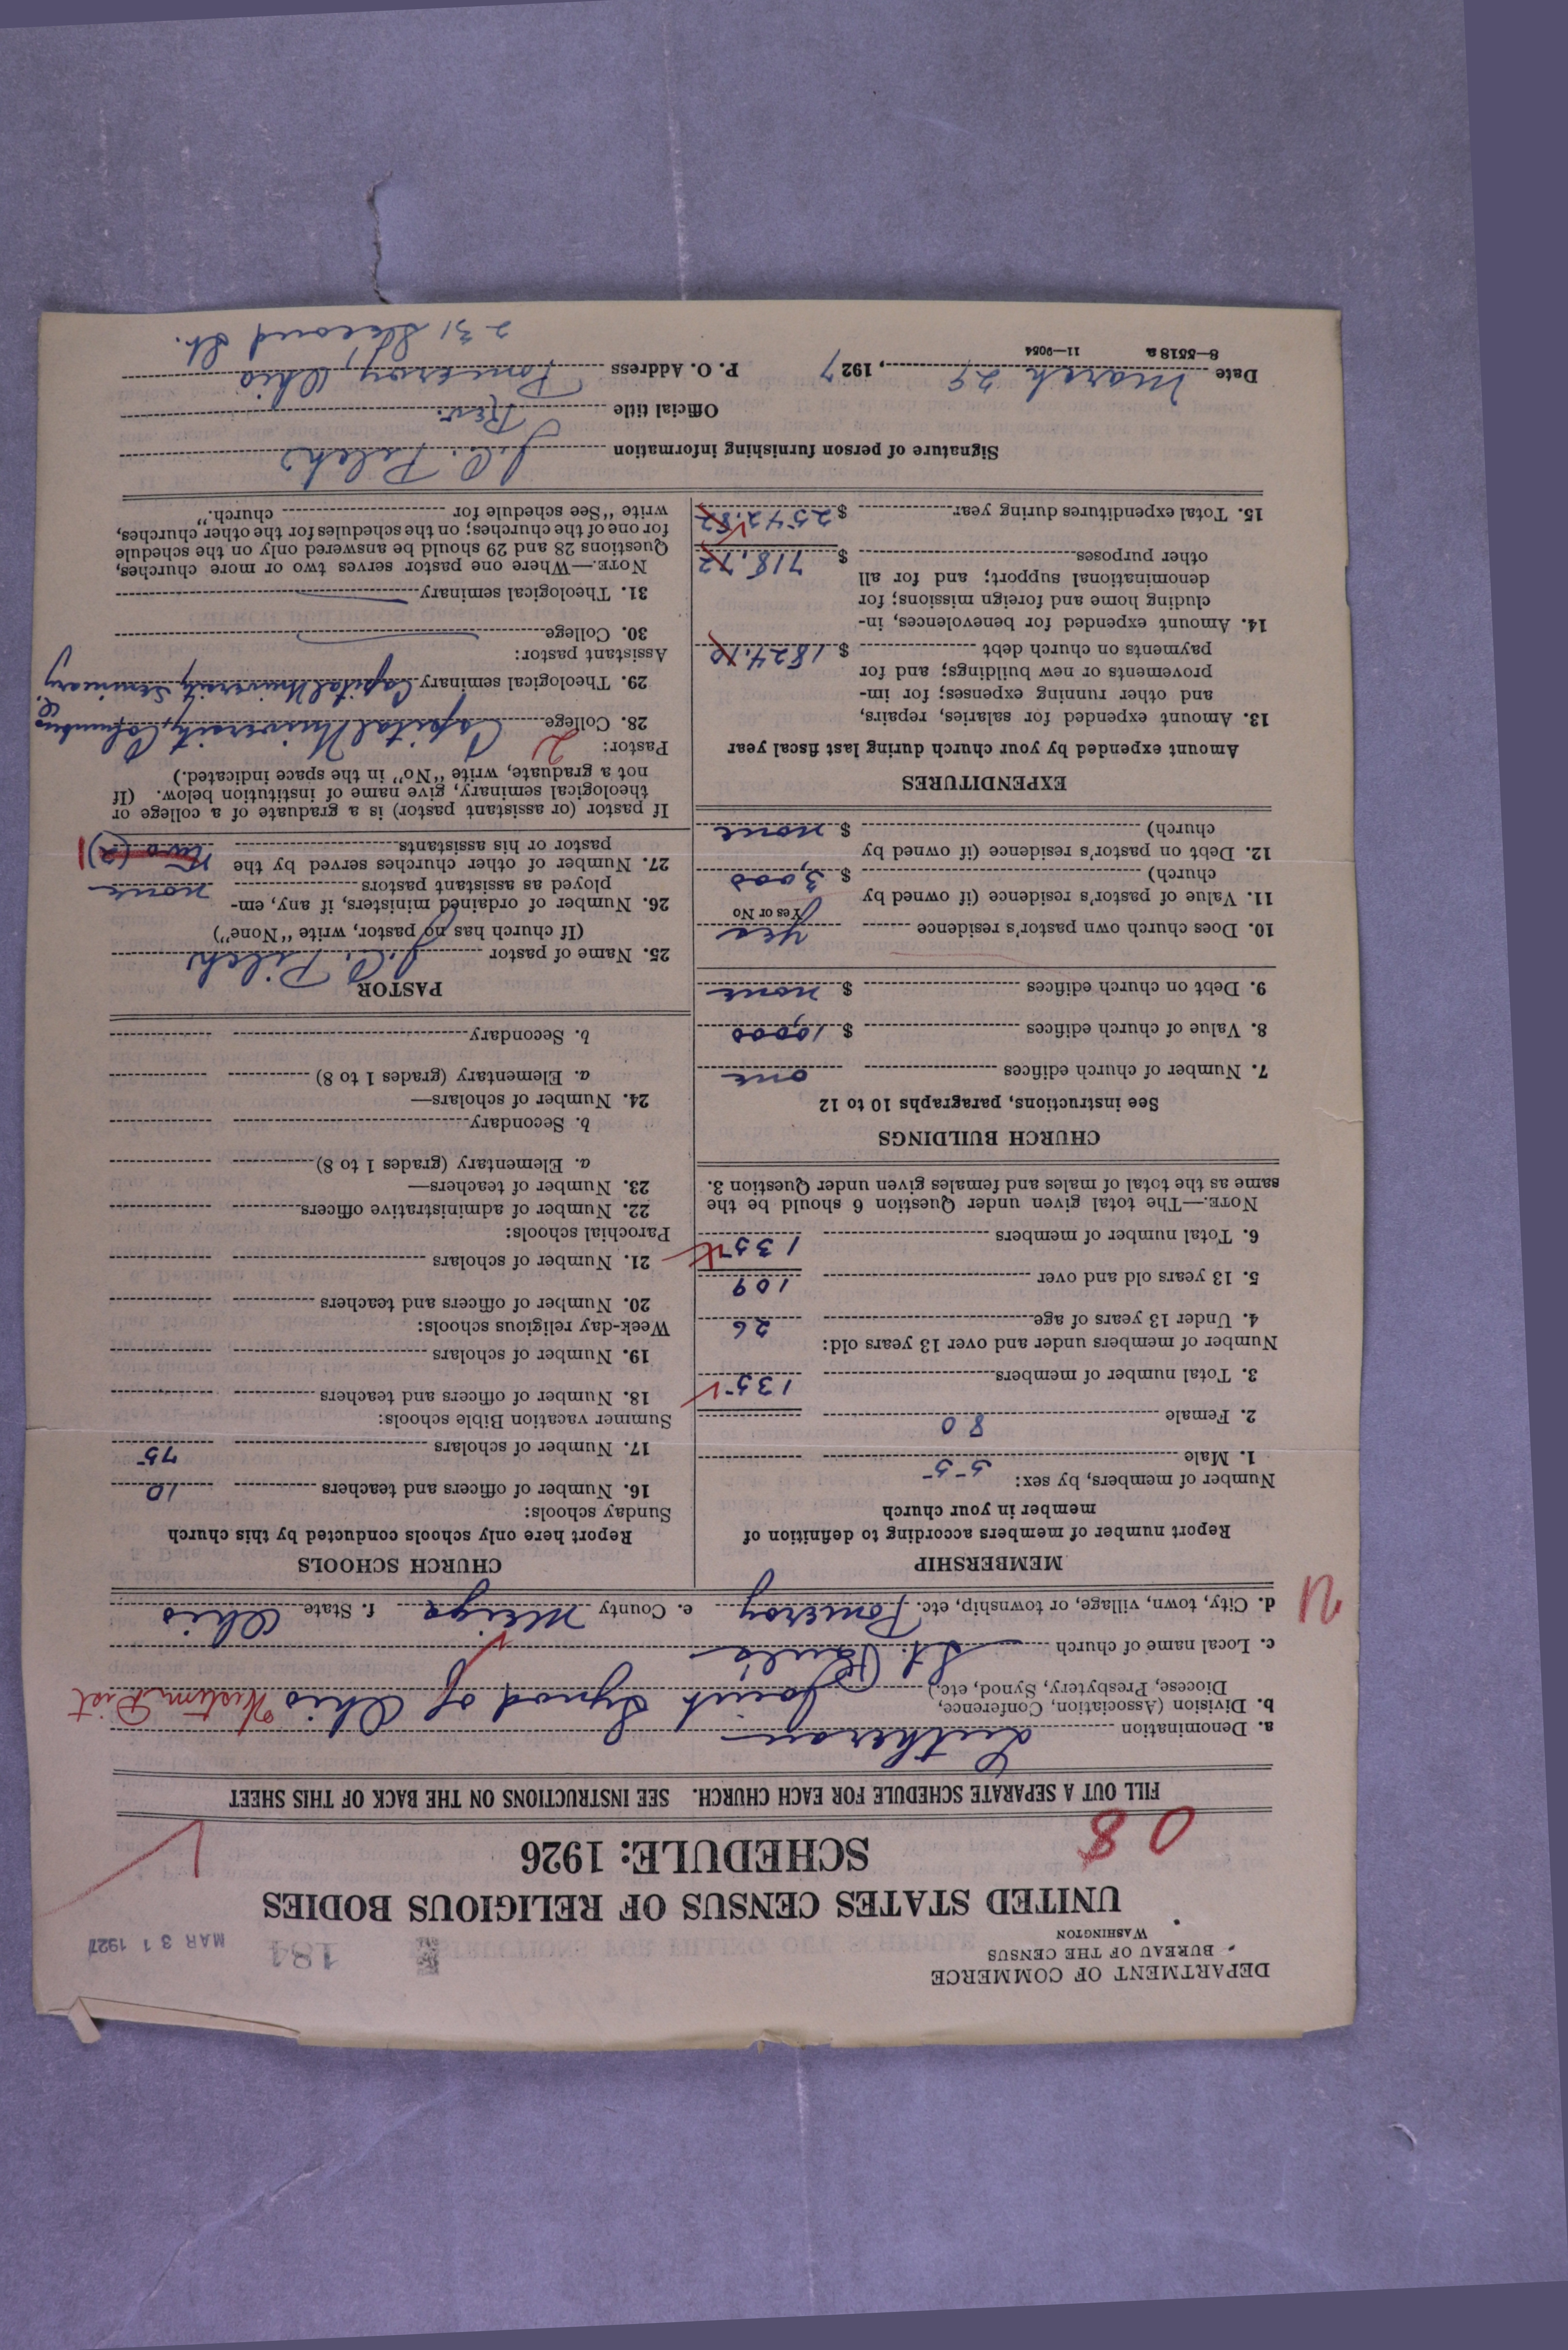 DEPARTMENT OF COMMERCE
BUREAU OF THE CENSUS
WASHINGTON
184
MAR 31 1927
UNITED STATES CENSUS OF RELIGIOUS BODIES
SCHEDULE: 1926
08
FILL OUT A SEPARATE SCHEDULE FOR EACH CHURCH. SEE INSTRUCTIONS ON THE BACK OF THIS SHEET
a. Denomination Lutheran
b. Division (Association, Conference, Diocese, Presbytery, Synod, etc.) Joint Synod of Ohio Western Dist
c. Local name of church St. Paul's
d. City, town, village, or township, etc. Pomeroy e. County Meigs f. State Ohio
MEMBERSHIP
Report number of members according to definition of
member in your church
Number of members, by sex:
1. Male 55
2. Female 80
3. Total number of members 135
Number of members under and over 13 years old:
4. Under 13 years of age 26
5. 13 years old and over 109
6. Total number of members 135
NOTE.—The total given under Question 6 should be the
same as the total of males and females given under Question 3.
CHURCH BUILDINGS
See instructions, paragraphs 10 to 12
7. Number of church edifices one
8. Value of church edifices $ 10,000
9. Debt on church edifices $ none
10. Does church own pastor's residence yes
Yes or No
11. Value of pastor's residence (if owned by
church) $ 3,000
12. Debt on pastor's residence (if owned by
church) $ none
EXPENDITURES
Amount expended by your church during last fiscal year
13. Amount expended for salaries, repairs,
and other running expenses; for im-
provements or new buildings; and for
payments on church debt $ 1824.10
14. Amount expended for benevolences, in-
cluding home and foreign missions; for
denominational support; and for all
other purposes $ 718.72
15. Total expenditures during year $ 2542.82
CHURCH SCHOOLS
Report here only schools conducted by this church
Sunday schools:
16. Number of officers and teachers 10
17. Number of scholars 75
Summer vacation Bible schools:
18. Number of officers and teachers
19. Number of scholars
Week-day religious schools:
20. Number of officers and teachers
21. Number of scholars
Parochial schools:
22. Number of administrative officers
23. Number of teachers—
a. Elementary (grades 1 to 8)
b. Secondary
24. Number of scholars—
a. Elementary (grades 1 to 8)
b. Secondary
PASTOR
25. Name of pastor J. C. Pilch
(If church has no pastor, write "None")
26. Number of ordained ministers, if any, em-
ployed as assistant pastors none
27. Number of other churches served by the
pastor or his assistants two (2) 1
If pastor (or assistant pastor) is a graduate of a college or
theological seminary, give name of institution below. (If
not a graduate, write "No" in the space indicated.)
Pastor: 2
28. College Capital University, Columbus, O.
29. Theological seminary Capital University Seminary
Assistant pastor:
30. College
31. Theological seminary
NOTE.—Where one pastor serves two or more churches,
Questions 28 and 29 should be answered only on the schedule
for one of the churches; on the schedules for the other churches,
write "See schedule for church."
Signature of person furnishing information J. C. Pilch
Official title Rev.
Date March 29, 1927 P. O. Address Pomeroy, Ohio
231 Second St.
8—5518 a 11—9054